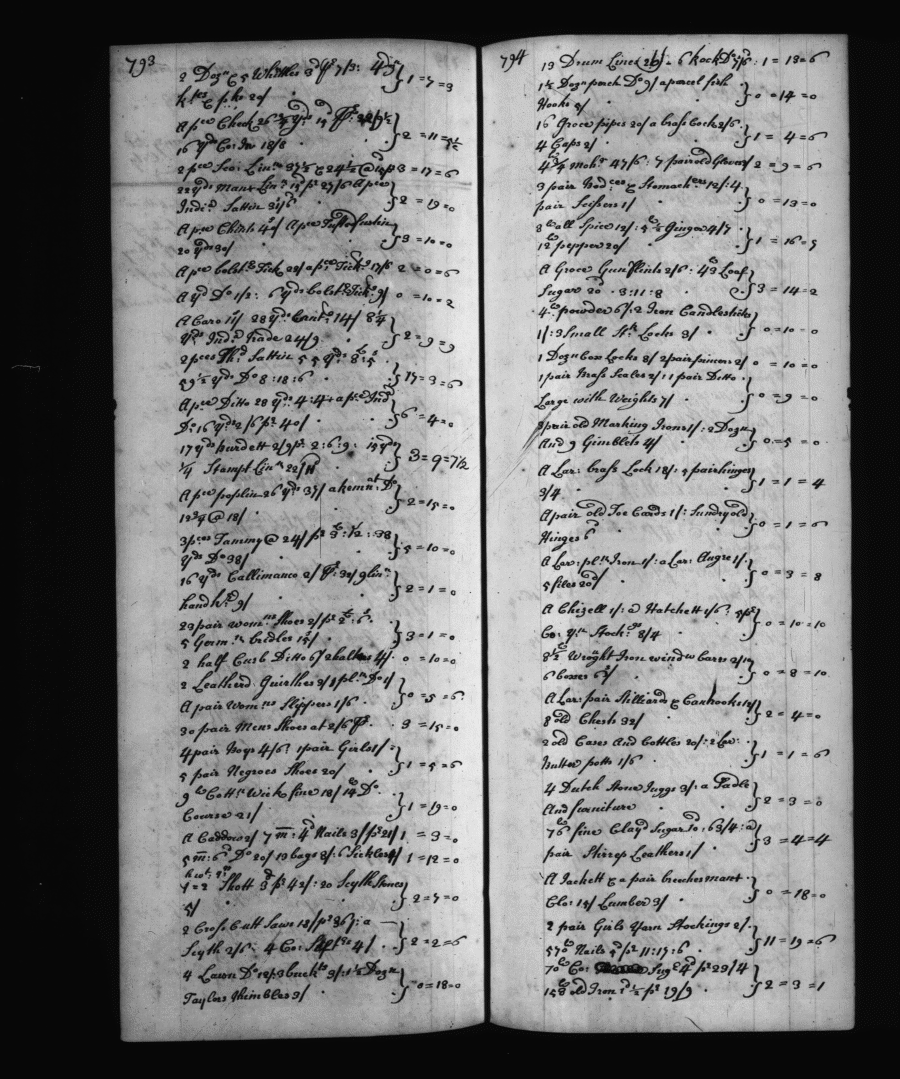 793
2 Dozn & 5 Whittles 3d pr 7/3: 45
kfes & fks 20/ } 1=7=3
A pce Check 26 yds
16 yds Co: Do 18/8 } 2=11=5½
2 pce Sco: Linn 37½ & 24½ @ 3=17=6
22 yds Manx Linn 15d pr 27/6 A pce
Indn Sattin 31/6 } 2=19=0
A pce Chints 40/ A pce Fustin
20 yds 30/ } 3=10=0
A pce bolstr Tick 23/ a pce Tick 17/6 2=0=6
A yd Do 1/2: 6 yds bolstr Tick 9/ 0=10=2
A Caro 11/ 28 yds 14/ 8¼
yds Indn Trade 24/9 } 2=9=9
2 pces Sattin 55 yds 8:5
59½ yds Do 8:18:6 } 17=3=6
A pce Ditto 28 yds 4:4 + a pce Ind
Do 16 yds 2/6 pr 40/ } 6=4=0
17 yds burdett 2/9 pr 2:6:9
¼ Stampt Linn 22/ } 3=9=7½
A pce poplin 26 yds 37/ a remnt Do
@ 18/ } 2=15=0
3 pces Tammy @ 24/ pr 3:12: 38
yds Do 38/ } 5=10=0
16 yds Callimanco 2/ pr: 32/ 9 linn
handhfs 9/ } 2=1=0
23 pair womns Shoes 2/ pr 2:6
5 Germn bridles 15/ } 3=1=0
2 half Curb Ditto 6/ 2 halters 4/ 0=10=0
2 Leatherd Guirthes 3/ 1 pln Do 1/
A pair Womns Slippers 1/6 } 0=5=6
30 pair Mens Shoes at 2/6 pr 3=15=0
4 pair Boys 4/6: 1 pair Girls 1/
5 pair Negroes Shoes 20/ } 1=5=6
9 lb Cottn Wick fine 18/ 14 lb Do
Course 21/ } 1=19=0
A Caddow 2/ 7 m: 4d Nails 3/ pr 21/ 1=3=0
5 m: 6d Do 20/ 13 bags 8/: 6 Sickles 4/ 1=12=0
1=2 Shott 3d pr 42/: 20 Scyth Stones
5/ } 2=7=0
2 Cross Cutt Saws 18/ pr 36/: a
Scyth 2/6: 4 Co: 4/ } 2=2=6
4 Lawn Do 3 buckls 3/: 1½ Dozn
Taylors thimbles 3/ } 0=18=0
794
19 Drum Lines : 6 kock Do 1=13=6
1½ Dozn perch Do 9/ a parcel fish
Hooks 5/ } 0=14=0
16 Groce pipes 20/ a brass Cock 2/6
4 Caps 2/ } 1=4=6
4¾ lb Mohr 47/6: 7 pair old Gloves 2=9=6
3 pair Bodees & Stomachers 12/: 4
pair Scissers 1/ } 0=13=0
8 lb all Spice 12/: 5½ lb Ginger 4/7
12 lb pepper 20/ } 1=16=5
A Groce Gun flints 2/6: 43 lb Loaf
Sugar 20d 3:11:8 } 3=14=2
4 lb powder 6/: 2 Iron Candlesticks
1/: 3 Small Stk Locks 3/ } 0=10=0
1 Dozn box Locks 8/ 2 pair pincers 2/ 0=10=0
1 pair Brass Scales 2/: 1 pair Ditto
Large with Weights 7/ } 0=9=0
8 pair old Marking Irons 1/: 2 Dozn
And 9 Gimblets 4/ } 0=5=0
A Lar: brass Lock 18/: 5 pair hinges
3/4 } 1=1=4
A pair old Toe Cards 1/: Sundry old
Hinges 6d } 0=1=6
A Lar: pln Iron 1/: a Lar: Augre 1/:
5 files 20d/ } 0=3=8
A Chizell 1/: a Hatchett 1/6: 5 pr
Co: Yn Stockgs 8/4 } 0=10=10
8½ lb Wroght Iron window barrs 2/10
6 boxes 6/ } 0=8=10
A Lar: pair Stilliards & Canhooks 12/
8 old Chests 32/ } 2=4=0
2 old Cases And bottles 20/: 2 Lar:
Butter potts 1/6 } 1=1=6
4 Dutch Stone Juggs 3/: a Sadle
And furniture } 2=3=0
76 lb fine Clayd Sugar 10: 63/4: a
pair Stirrop Leathers 1/ } 3=4=4
A Jackett & a pair breeches mant
Clo: 15/ Lumber 3/ } 0=18=0
2 pair Girls Yarn Stockings 2/
570 lb Nails 5d pr 11:17:6 } 11=19=6
70 lb Co: Sugr 4d pr 23/4
158 lb old Iron 1d½ pr 19/9 } 2=3=1